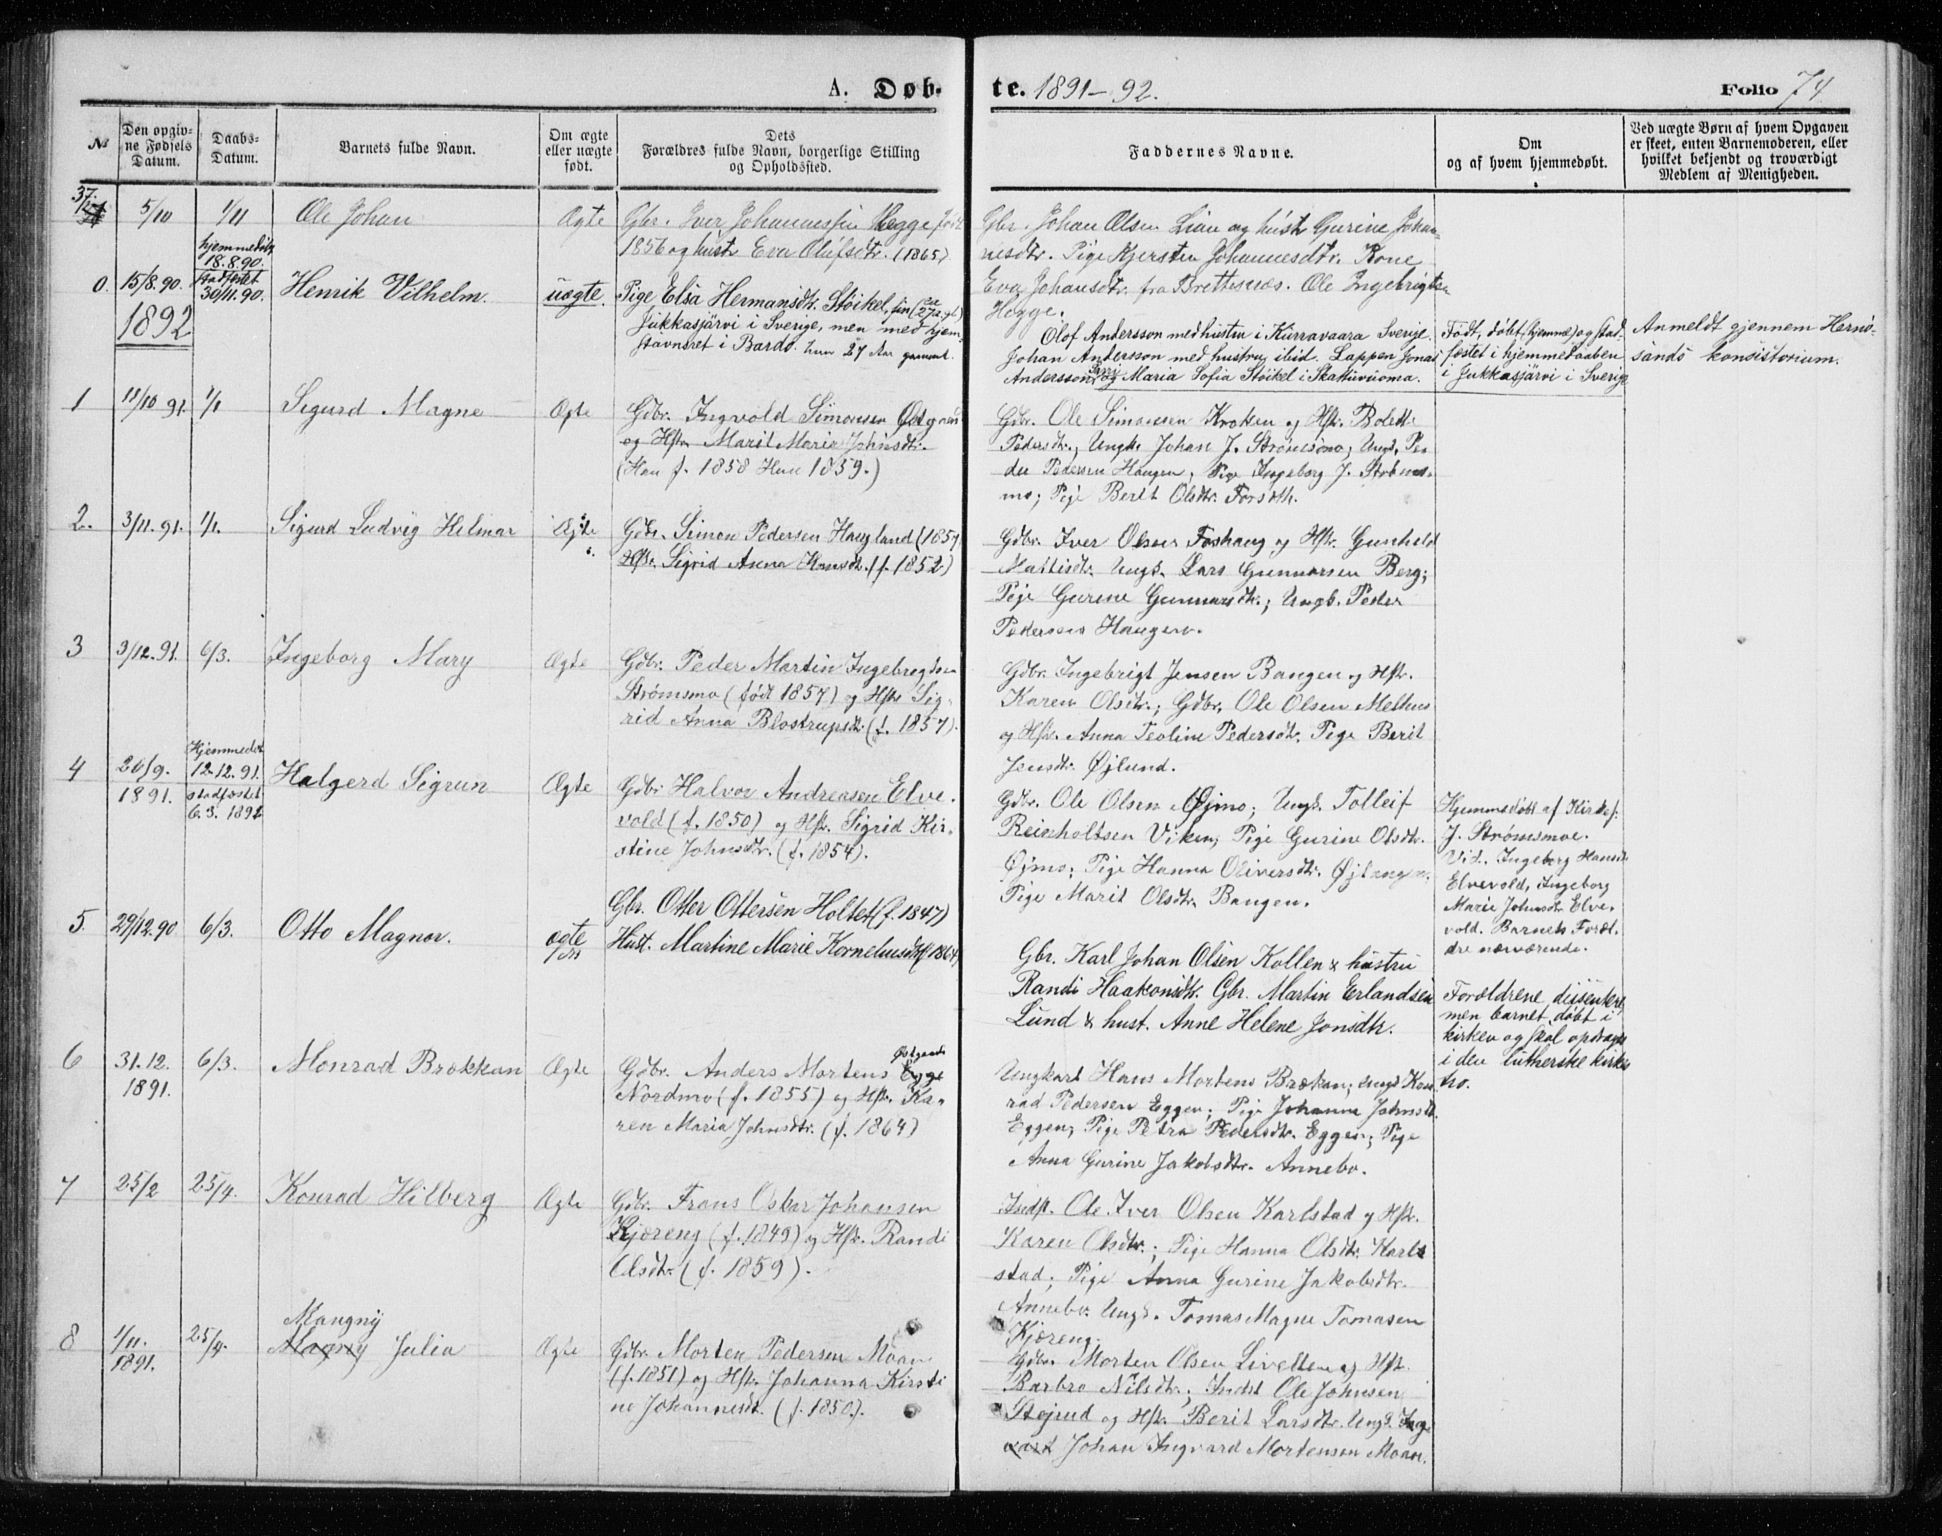 A. Døb-
te. 1891-92.
Folio 74
№
Den opgiv-
ne Fødsels
Datum.
Daabs-
Datum.
Barnets fulde Navn.
Om ægte
eller uægte
født.
Dets
Forældres fulde Navn, borgerlige Stilling
og Opholdssted.
Faddernes Navne.
Om
og af hvem hjemmedøbt.
Ved uægte Børn af hvem Opgaven
er skeet, enten Barnemoderen, eller
hvilket bekjendt og troværdigt
Medlem af Menigheden.
37
5/10
1/11
Ole Johan
Ægte
Gbr. Iver Johannessen Hegge født
1856 og hust. Eva Olufsdtr. (1865)
Gbr. Johan Olsen Lian og hust. Gurine Johan-
nesdtr. Pige Kjersten Johannesdtr. Kone
Eva Johansdtr. fra Brettesnes. Ole Ingebrigtsen
Hegge.
0.
15/8.90.
hjemmedøbt
18.8.90.
stadfæstet
30/11.90.
Henrik Vilhelm.
uægte.
Pige Elsa Hermansdtr. Stöikel, fin
Jukkasjärvi i Sverige, men med hjem-
stavnsret i Bardo. hun 27 Aar gammel.
Olof Andersson med hustru i Kurravaara Sverige.
Johan Andersson med hustru ibid. Lappen Jonas
Andersson Sarri og Maria Sofia Stöikel i Skattuvuoma.
Født, døbt (hjemme) og stad-
fæstet i hjemmedaaben
i Jukkasjärvi i Sverige
Anmeldt gjennem Hernö-
sands konsistorium.
1892
1
11/10 91.
1/1
Sigurd Magne
Ægte
Gdbr. Ingvold Simonsen Østgaard
og Hstr. Marit Marie Johnsdtr.
(Han f. 1858 Hun 1859.)
Gdbr. Ole Simonsen Kroken og Hst. Bolette
Pedersdtr., Ungk. Johan J. Strømsmo; Ungk. Pe-
der Pedersen Haugen; Pige Ingeborg J. Strøms-
mo; Pige Berit Olsdtr. Forseth.
2.
3/11.91.
1/1.
Sigurd Ludvig Helmar
Ægte
Gdbr. Simon Pedersen Haugland (1857
Hstr. Sigrid Anna Hansdtr. (f. 1852)
Gdbr. Iver Olsen Foshaug og Hstr. Gunhild
Mattisdtr. Ungk. Lars Gunnarsen Berg;
Pige Gurine Gunnarsdtr.; Ungk. Peder
Pedersen Haugen.
3
3/12.91.
6/3.
Ingeborg Mary
Ægte
Gdbr. Peder Martin Ingebrigtsen
Strømsmo (født 1857) og Hstr. Sig-
rid Anna Blostrupsdtr. (f. 1857).
Gdbr. Ingebrigt Jensen Bangen og Hst.
Karen Olsdtr.; Gdbr. Ole Olsen Melhus
og Hst. Anna Teoline Pedersdtr. Pige Berit
Jensdtr. Øjlund.
4
26/9.
1891.
Hjemmedøbt
12.12.91.
stadfæstet
6.3.1892
Halgerd Sigrun
Ægte
Gdbr. Halvor Andreasen Elve-
vold (f. 1850) og Hst. Sigrid Kir-
stine Johnsdtr. (f. 1854).
Gdbr. Ole Olsen Øjmo; Ungk. Tolleif
Reinholtsen Viken; Pige Gurine Olsdtr.
Øjmo; Pige Hanna Oliversdtr. Øjtangen.
Pige Marit Olsdtr. Bangen.
Hjemmedøbt af Kirkes.
J. Strømsmoe.
Vid. Ingeborg Hansdtr
Elvevold, Ingeborg
Marie Johnsdtr Elve-
vold. Barnets Foræl-
dre nærværende.
5.
29/12.90
6/3.
Otto Magnor.
ægte
Gbr. Otter Ottersen Holtet (f. 1847)
Hust. Martine Marie Korneliusdtr (f. 1864)
Gbr. Karl Johan Olsen Kollen & hustru
Randi Haakonsdtr. Gbr. Martin Erlandsen
Lund & hust. Anne Helene Jonsdtr.
Forældrene dissentere,
men barnet døbt i
kirken og skal opdrages
i den lutherske kirkes
tro.
6
31.12.
1891.
6/3.
Monrad Brækkan
Ægte
Gdbr. Anders Mortens Egge Østgaard
Nordmo (f. 1855) og Hst. Ka-
ren Maria Johnsdtr. (f. 1864)
Ungkarl Hans Mortens Brækan; Ungk Kon-
rad Pedersen Eggen; Pige Johanna Johnsdtr.
Eggen; Pige Petra Pedersdtr. Eggen; Pige
Anna Gurine Jakobsdtr. Annebo.
7
25/2
25/4.
Konrad Hilberg
Ægte
Gdbr. Frans Oskar Johansen
Kjæreng (f. 1849) og Hst. Randi
Olsdtr. (f. 1859).
Indst. Ole Iver Olsen Karlstad og Hst.
Karen Olsdtr.; Pige Hanna Olsdtr. Karl-
stad; Pige Anna Gurine Jakobsdtr.
Annebo. Ungk. Tomas Magne Tomasen
Kjæreng.
8
1/11.
1891.
25/4.
Mangny
Magny Julia
Ægte
Gdbr. Morten Pedersen Moan
(f. 1851) og Hst. Johanna Kirsti-
ne Johannesdt. (f. 1850).
Gdbr. Morten Olsen Livelten og Hst.
Barbro Nilsdtr.; Indst Ole Johnsen
Stejrud og Hst. Berit Larsdtr. Ungk. Inge
vart Johan Ingvard Mortensen Moan.